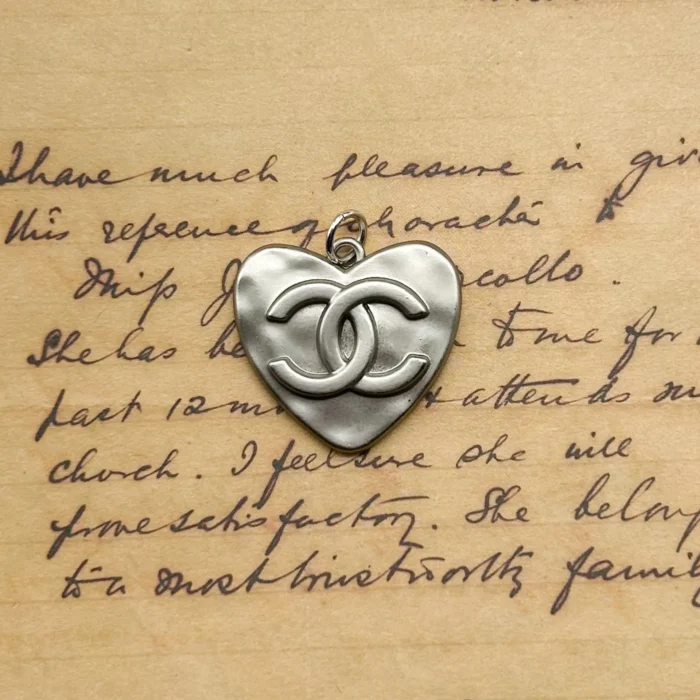 I have much pleasure in giv
this reference of character to
Miss J collo.
She has be me for
past 12 m & attends m
church. I feel sure she will
prove satisfactory. She belong
to a most trustworthy family